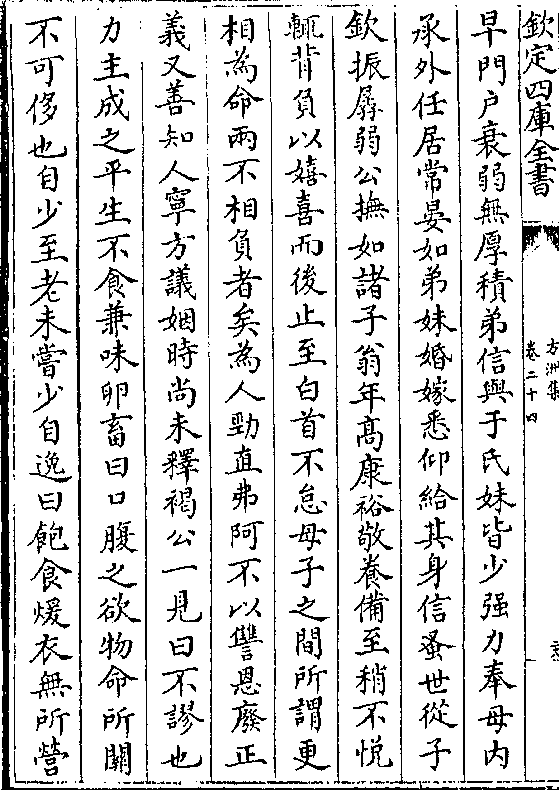 欽定四庫全書
方洲集
卷二十四
早門户衰弱無厚積弟信與于氏妹皆少强力奉母内
承外任居常晏如弟妹婚嫁悉仰給其身信蚤世從子
欽振孱弱公撫如諸子翁年髙康裕敬養備至稍不悦
輒背負以嬉喜而後止至白首不怠母子之間所謂更
相為命兩不相負者矣為人勁直弗阿不以讐恩廢正
義又善知人寧方議姻時尚未釋褐公一見曰不謬也
力主成之平生不食兼味卵畜曰口腹之欲物命所關
不可侈也自少至老未嘗少自逸曰飽食煖衣無所營